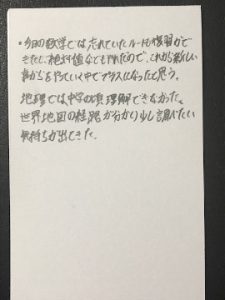 ・今日の数学では忘れていたルートの復習がで
きたし、絶対値などもやれたので、これから新しい
事がらをやっていく中でプラスになったと思う。
地理では、中学の頃理解できなかった
世界地図の経路が分かり少し調べたい
気持ちが出てきた。